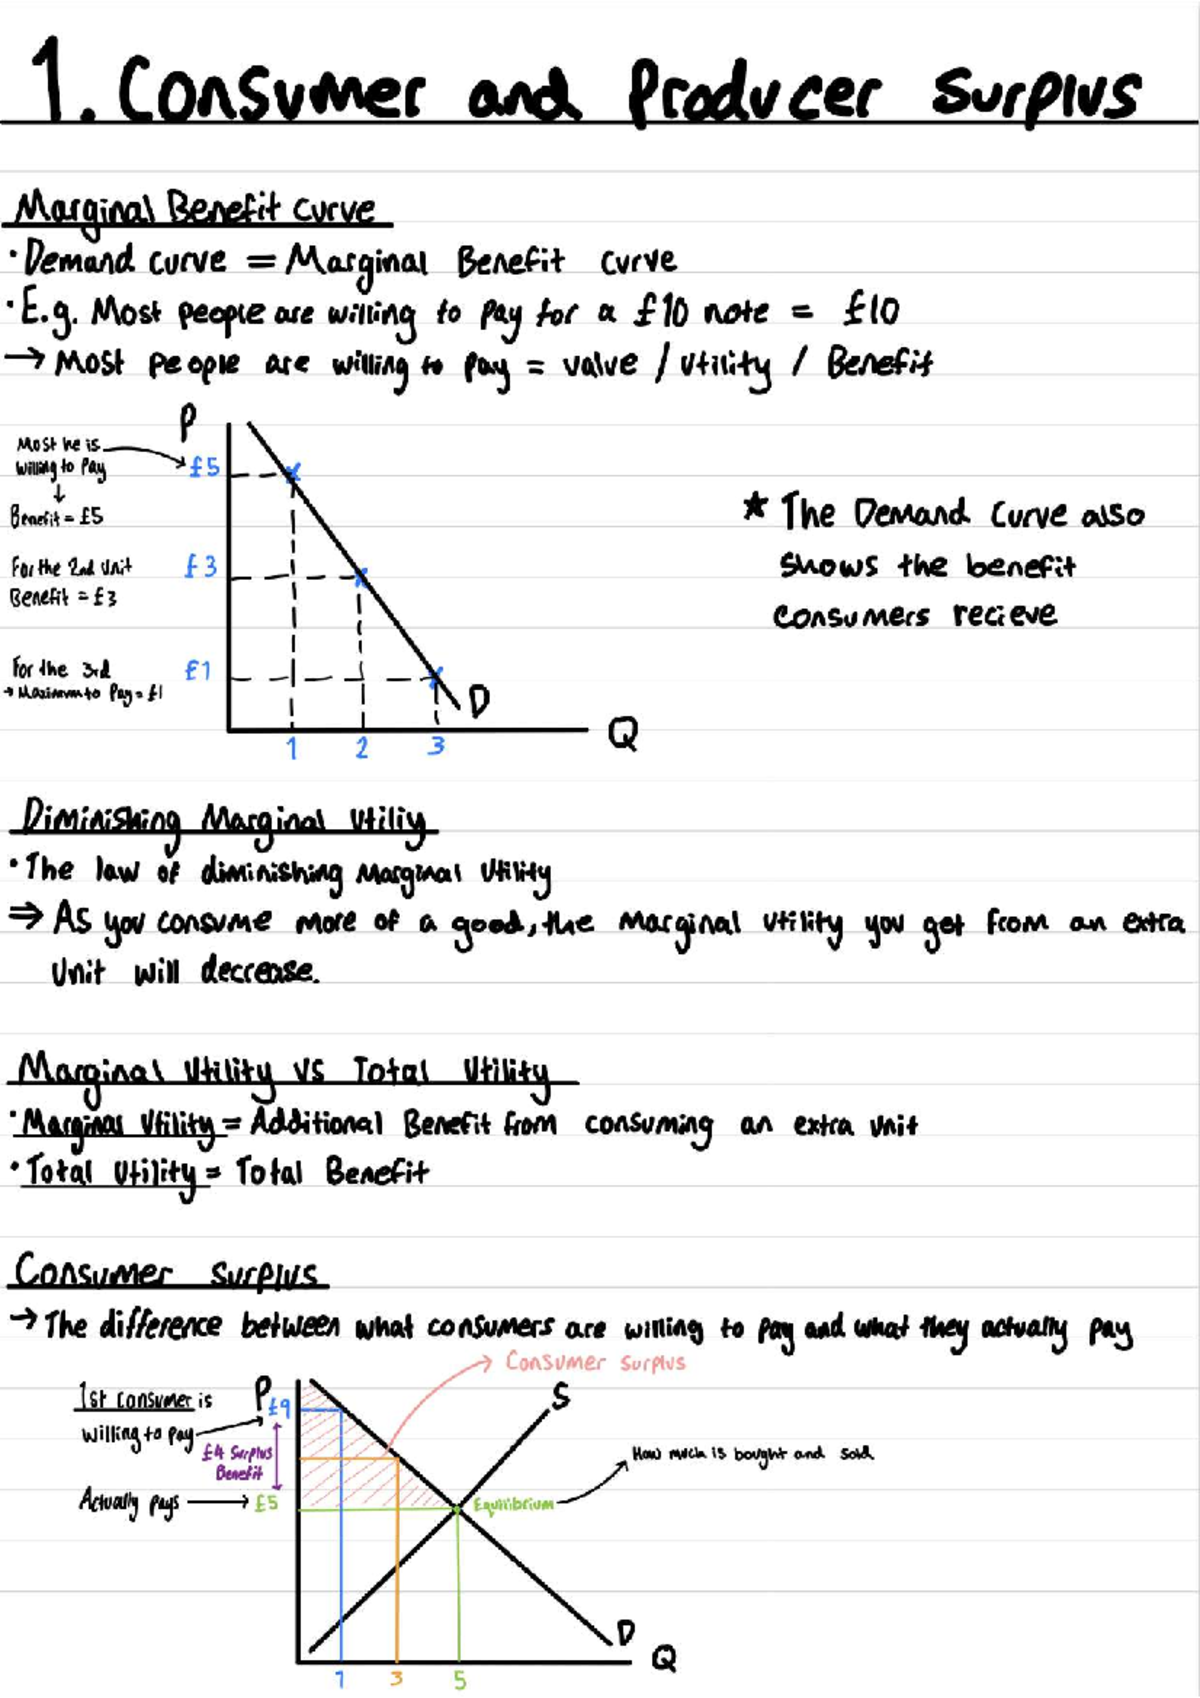 1. Consumer and Producer Surplus
Marginal Benefit Curve
· Demand curve = Marginal Benefit curve
· E.g. Most people are willing to pay for a £10 note = £10
→ Most people are willing to pay = value / utility / Benefit
P
Most he is
willing to pay
↓
Benefit = £5
£5
For the 2nd unit
Benefit = £3
£3
For the 3rd
→ Maximum to pay = £1
£1
D
Q
1 2 3
★ The Demand Curve also
shows the benefit
consumers recieve
Diminishing Marginal Utiliy
· The law of diminishing Marginal Utility
⇒ As you consume more of a good, the marginal utility you get from an extra
unit will decrease.
Marginal Utility vs Total Utility
· Marginal Utility = Additional Benefit from consuming an extra unit
· Total Utility = Total Benefit
Consumer surplus
→ The difference between what consumers are willing to pay and what they actually pay
Consumer surplus
1st consumer is
willing to pay
P
£9
£4 Surplus
Benefit
Actually pays
£5
S
Equilibrium
How much is bought and sold
D
Q
1 3 5